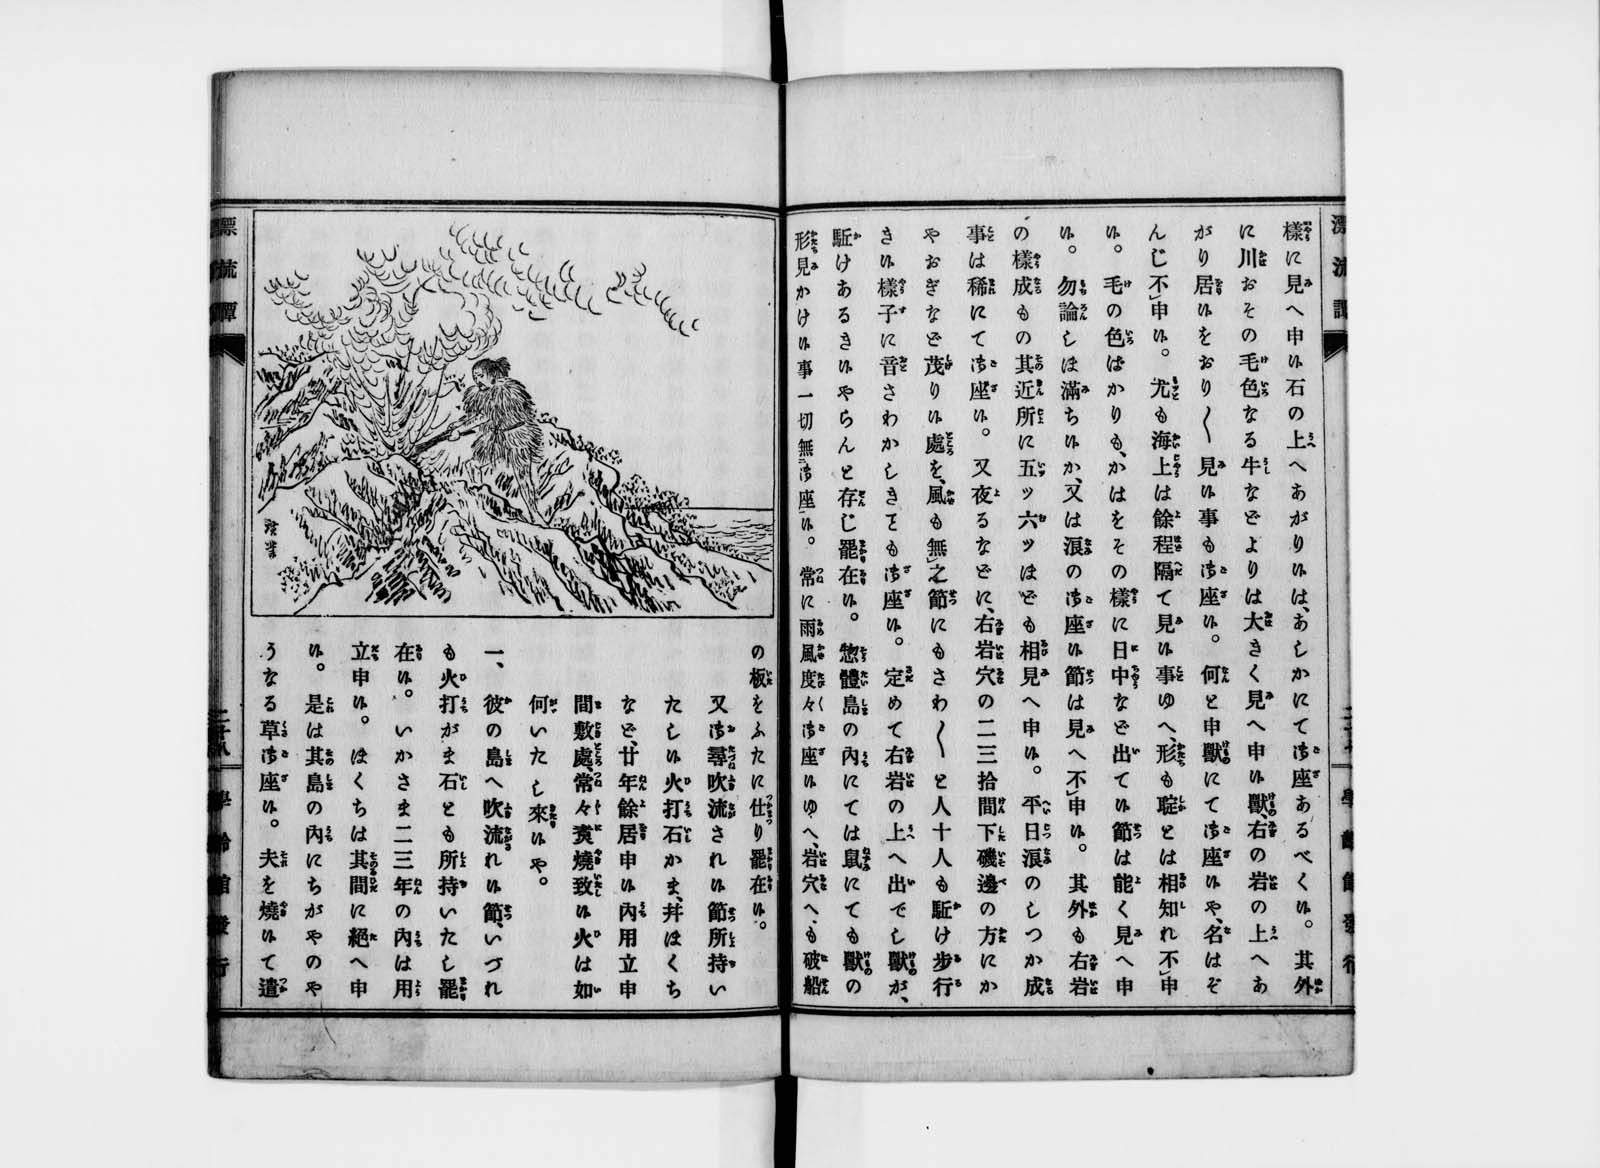 漂流譚
樣に見へ申い石の上へあがりいは、あしかにて御座あるべくい。其外
に川おその毛色なる牛などよりは大きく見へ申い獸、右の岩の上へあ
がり居いをおり〱見い事も御座い。何と申獸にて御座いや、名はぞ
んじ不申い。尤も海上は餘程隔て見い事ゆへ、形も聢とは相知れ不申
い。毛の色ばかりも、かはをその樣に日中など出てい節は能く見へ申
い。勿論しほ滿ちいか、又は浪の御座い節は見へ不申い。其外も右岩
の樣成もの其近所に五ッ六ッほども相見へ申い。平日浪のしつか成
事は稀にて御座い。又夜るなどに、右岩穴の二三拾間下磯邊の方にか
やおぎなど茂りい處を、風も無之節にもさわ〱と人十人も駈け步行
きい樣子に音さわかしきとも御座い。定めて右岩の上へ出でし獸が、
駈けあるきいやらんと存じ罷在い。惣體島の內にては鼠にても獸の
形見かけい事一切無御座い。常に雨風度々御座いゆへ、岩穴へも破船
の板をふたに仕り罷在い。
又御尋吹流されい節所持い
たしい火打石かま、幷ほくち
など、廿年餘居申い內用立申
間敷處、常々煑燒致い火は如
何いたし來いや。
一、彼の島へ吹流れい節、いづれ
も火打がま石とも所持いたし罷
在い。いかさま二三年の內は用
立申い。ほくちは其間に絕へ申
い。是は其島の內にちがやのや
うなる草御座い。夫を燒いて遣
漂流譚
二十八
學齡館發行